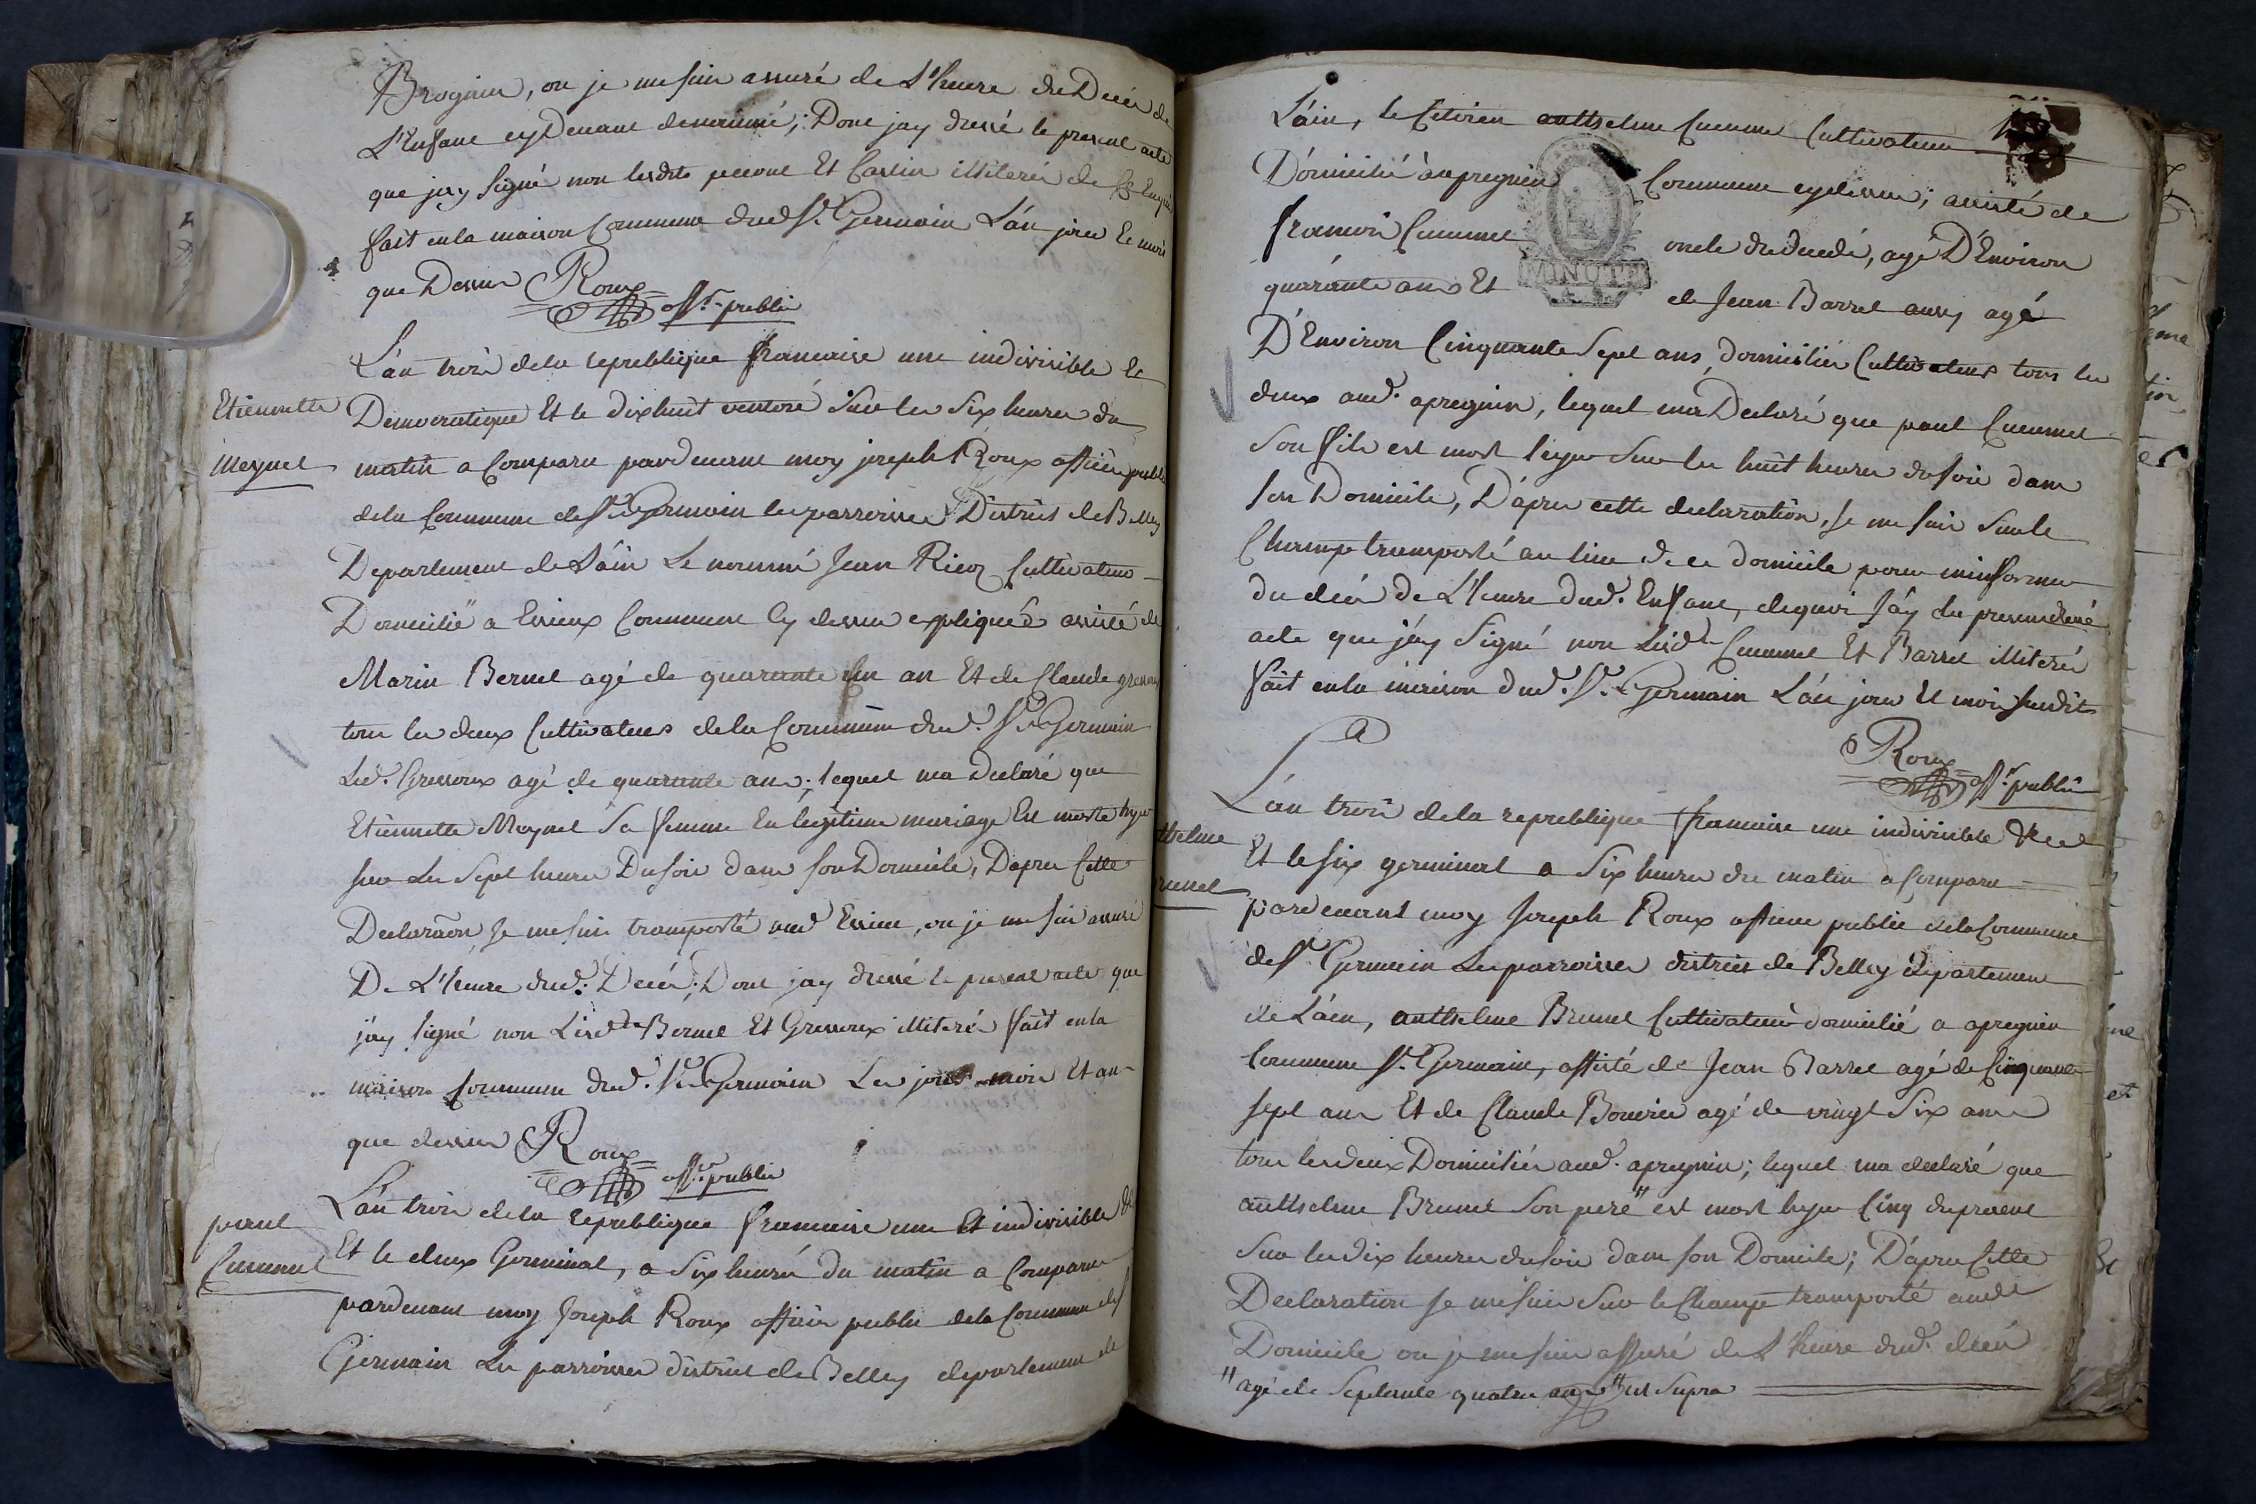 Brognin, ou je me suis assuré de L'heure du Decés de
L'Enfant cy Devant denommé; Dont jay dressé le present acte
que jay signé non lesdits perone Et Carlin illiterés de ce Enquis
fait en la maison Commune dud. St. Germain L'an jour Et mois
que Dessus Roux
offr. public
L'an trois dela republique francaise une indivisible Et
Etiennette
Democratique Et le dixhuit ventose sur les Six heures du
Meynet
matin a Comparu pardevant moy joseph Roux officier public
dela Commune de St. Germain les parroisses District de Belley
Departement de L'ain Le nommé Jean Ricoz Cultivateur
Domicilié a Essieux Commune Cy dessus expliqué assisté de
Marin Bernet agé de quarante un an Et de Claude
tous les deux Cultivateurs dela Commune dud. St. Germain
Led. Gressoux agé de quarante ans; lequel ma declaré que
Etiennette Meynet Sa femme En legitime mariage Est morte hyer
sur Les Sept heures Du soir dans son Domicile, Dapres Cette
Declaraõn Je me suis transporté aud Essieu, ou je me suis assuré
De L'heure dud. Decés; Dont jay dressé le present acte que
jay signé non Lesd. Bernet Et Gressoux illiterés fait en la
maison Commune dud. St. Germain Les jours mois Et an
que dessus Roux
offr. public
L'an trois dela republique francaise une Et indivisible &
paul
Et le deux Germinal, a Six heures du matin a Comparu
Cucumel
pardevant moy Joseph Roux officier public dela Commune de St
Germain Les parroisses district de Belley departement de
L'ain, le Citoien anthelme Cucumel Cultivateur
Domicilié à apregnin Commune cydessus; assisté de
francois Cucumel oncle du decedé, agé D'Environ
MINUTE
quarante ans Et de Jean Barrel aussy agé
D'Environ Cinquante Sept ans, domiciliés Cultivateurs tous les
deux aud. apregnin, lequel ma Declaré que paul Cucumel
Son fils est mort hyer Sur les huit heures du soir dans
son Domicile, D'apres cette declaration, Je me suis Sur le
Champ transporté au lieu de ce domicile pour m'informer
du decés de L'heure dud. Enfant, dequoi J'ay du present dressé
acte que j'ay Signé non Lesd. Cucumel Et Barrel illiterés
fait en la maison dud. St. Germain L'an jour Et mois susdits
Roux
offr. public
L'an trois dela republique francaise une indivisible &
thelme
Et le six germinal a Six heures du matin a Comparu
runet
pardevant moy Joseph Roux officier public dela Commune
de St. Germain Les parroisses district de Belley Departement
de L'ain, anthelme Brunet Cultivateur domicilié a apregnin
Commune St. Germain, assisté de Jean Barrel agé de Cinquante
sept ans Et de Claude Bouvier agé de vingt Six ans
tous les deux Domiciliés aud. apregnin; lequel ma declaré que
anthelme Brunet Son pere " est mort hyer Cinq du present
Sur les dix heures du soir dans son Domicile; D'apres Cette
Declaration Je me suis Sur le Champ transporté aud.
Domicile ou je me suis assuré de L'heure dud. decés
" agé de Septante quatre ans " ut Supra